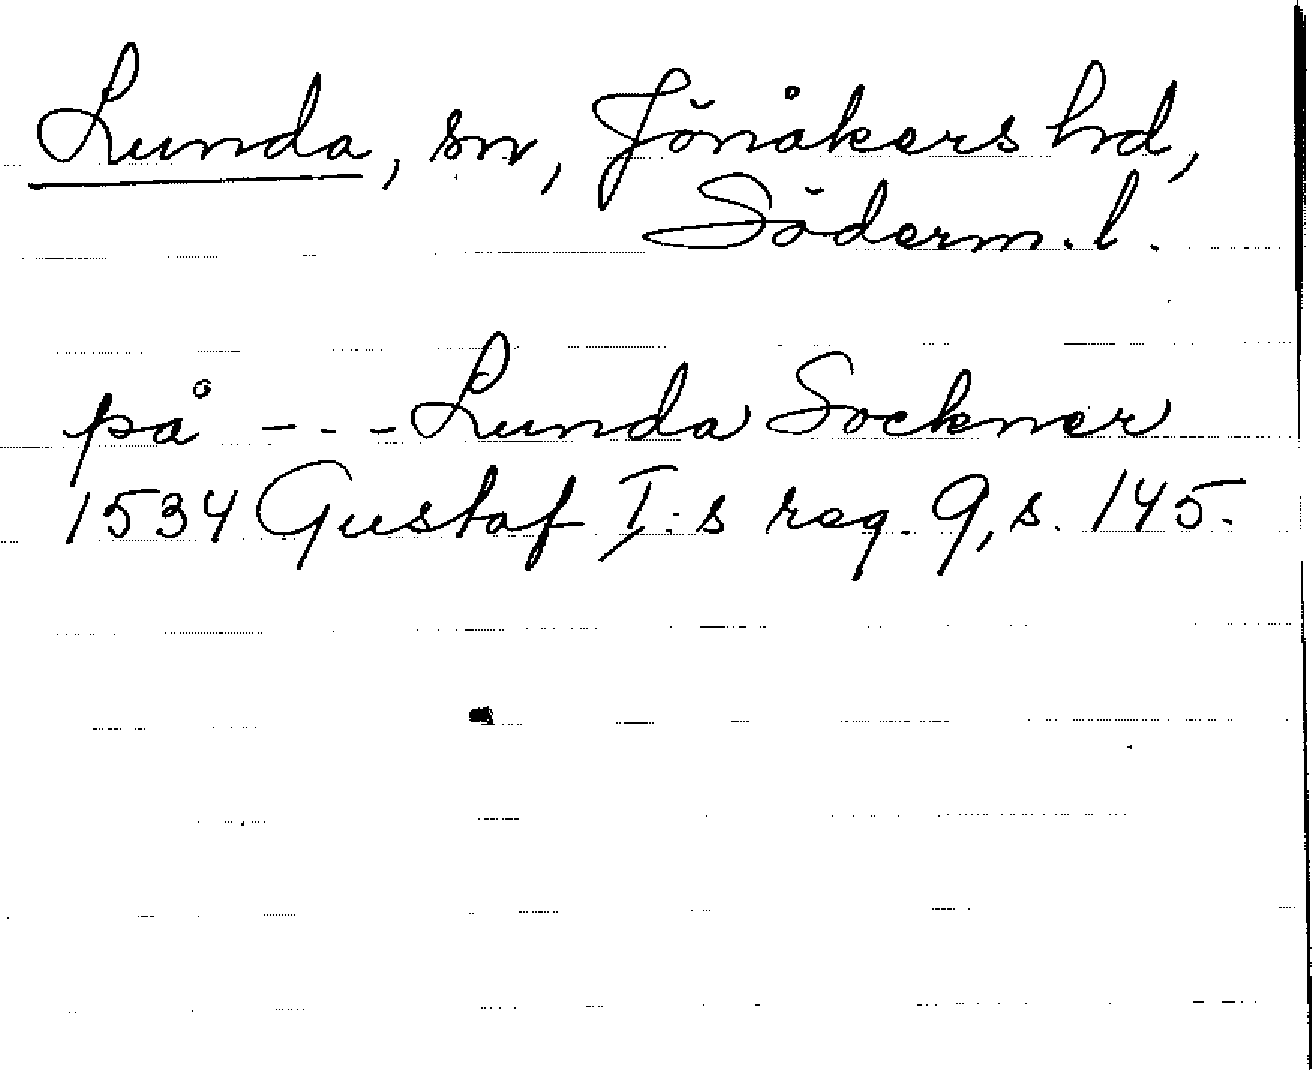 Lunda, sn, Jönåkers hd,
Söderm. l.
på - - - Lunda Sockner
1534 Gustaf I:s reg. 9, s. 145.